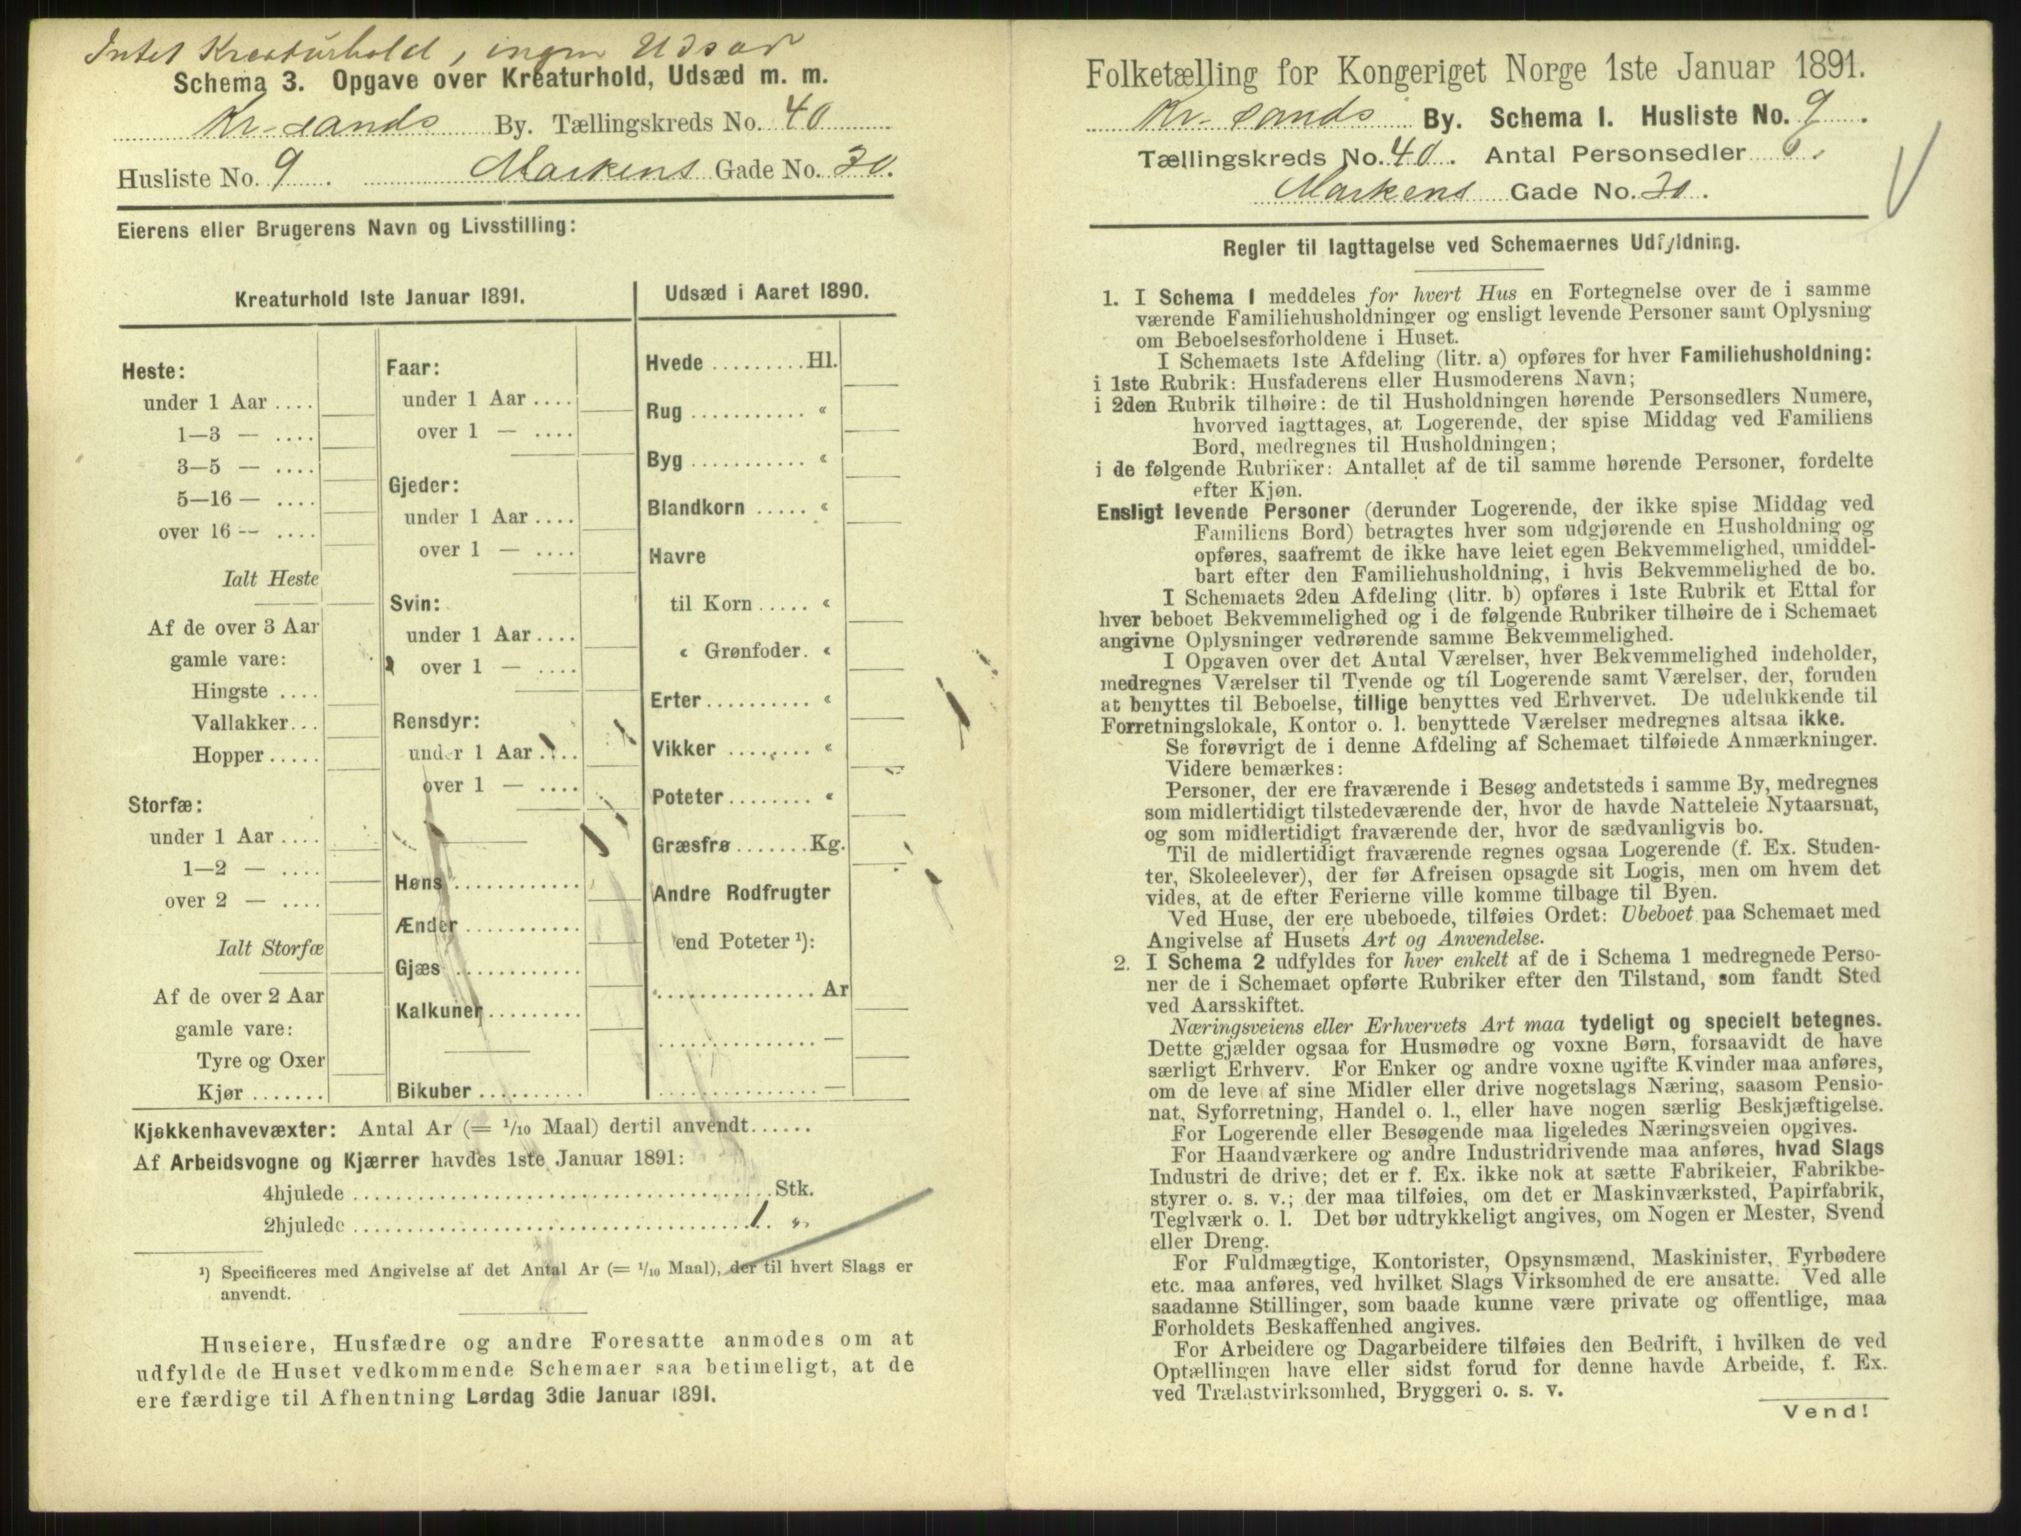 Intet Kreaturhold, ingen Udsæd
Schema 3. Opgave over Kreaturhold, Udsæd m. m.
Kr-sands By. Tællingskreds No. 40
Husliste No. 9 Markens Gade No. 30.
Eierens eller Brugerens Navn og Livsstilling:
Kreaturhold 1ste Januar 1891.
Heste:
under 1 Aar ....
1—3 — ....
3—5 — ....
5—16 — ....
over 16 -- ....
Ialt Heste
Af de over 3 Aar
gamle vare:
Hingste ....
Vallakker...
Hopper.....
Storfæ:
under 1 Aar ....
1—2 — ....
over 2 — ....
Ialt Storfæ
Af de over 2 Aar
gamle vare:
Tyre og Oxer
Kjør .......
Faar:
under 1 Aar ....
over 1 — ....
Gjeder:
under 1 Aar ....
over 1 — ....
Svin:
under 1 Aar ....
over 1 — ....
Rensdyr:
under 1 Aar ....
over 1 — ....
Høns............
Ænder...........
Gjæs............
Kalkuner.........
Bikuber..........
Udsæd i Aaret 1890.
Hvede.........Hl.
Rug........... «
Byg........... «
Blandkorn..... «
Havre
til Korn..... «
« Grønfoder. «
Erter.......... «
Vikker........ «
Poteter........ «
Græsfrø.......Kg.
Andre Rodfrugter
end Poteter ¹):
................Ar
................—
................—
Kjøkkenhavevæxter: Antal Ar (= 1/10 Maal) dertil anvendt......
Af Arbeidsvogne og Kjærrer havdes 1ste Januar 1891:
4hjulede.......................................Stk.
2hjulede.....................................1. «
¹) Specificeres med Angivelse af det Antal Ar (= 1/10 Maal), der til hvert Slags er
anvendt.
Huseiere, Husfædre og andre Foresatte anmodes om at
udfylde de Huset vedkommende Schemaer saa betimeligt, at de
ere færdige til Afhentning Lørdag 3die Januar 1891.
Folketælling for Kongeriget Norge 1ste Januar 1891.
Kr-sands By. Schema 1. Husliste No. 9.
Tællingskreds No. 40. Antal Personsedler 6.
Markens Gade No. 30.
Regler til Iagttagelse ved Schemaernes Udfyldning.
1. I Schema 1 meddeles for hvert Hus en Fortegnelse over de i samme
værende Familiehusholdninger og ensligt levende Personer samt Oplysning
om Beboelsesforholdene i Huset.
I Schemaets 1ste Afdeling (litr. a) opføres for hver Familiehusholdning:
i 1ste Rubrik: Husfaderens eller Husmoderens Navn;
i 2den Rubrik tilhøire: de til Husholdningen hørende Personsedlers Numere,
hvorved iagttages, at Logerende, der spise Middag ved Familiens
Bord, medregnes til Husholdningen;
i de følgende Rubriker: Antallet af de til samme hørende Personer, fordelte
efter Kjøn.
Ensligt levende Personer (derunder Logerende, der ikke spise Middag ved
Familiens Bord) betragtes hver som udgjørende en Husholdning og
opføres, saafremt de ikke have leiet egen Bekvemmelighed, umiddel-
bart efter den Familiehusholdning, i hvis Bekvemmelighed de bo.
I Schemaets 2den Afdeling (litr. b) opføres i 1ste Rubrik et Ettal for
hver beboet Bekvemmelighed og i de følgende Rubriker tilhøire de i Schemaet
angivne Oplysninger vedrørende samme Bekvemmelighed.
I Opgaven over det Antal Værelser, hver Bekvemmelighed indeholder,
medregnes Værelser til Tyende og til Logerende samt Værelser, der, foruden
at benyttes til Beboelse, tillige benyttes ved Erhvervet. De udelukkende til
Forretningslokale, Kontor o. l. benyttede Værelser medregnes altsaa ikke.
Se forøvrigt de i denne Afdeling af Schemaet tilføiede Anmærkninger.
Videre bemærkes:
Personer, der ere fraværende i Besøg andetsteds i samme By, medregnes
som midlertidigt tilstedeværende der, hvor de havde Natteleie Nytaarsnat,
og som midlertidigt fraværende der, hvor de sædvanligvis bo.
Til de midlertidigt fraværende regnes ogsaa Logerende (f. Ex. Studen-
ter, Skoleelever), der før Afreisen opsagde sit Logis, men om hvem det
vides, at de efter Ferierne ville komme tilbage til Byen.
Ved Huse, der ere ubeboede, tilføies Ordet: Ubeboet paa Schemaet med
Angivelse af Husets Art og Anvendelse.
2. I Schema 2 udfyldes for hver enkelt af de i Schema 1 medregnede Perso-
ner de i Schemaet opførte Rubriker efter den Tilstand, som fandt Sted
ved Aarsskiftet.
Næringsveiens eller Erhvervets Art maa tydeligt og specielt betegnes.
Dette gjælder ogsaa for Husmødre og voxne Børn, forsaavidt de have
særligt Erhverv. For Enker og andre voxne ugifte Kvinder maa anføres,
om de leve af sine Midler eller drive nogetslags Næring, saasom Pensio-
nat, Syforretning, Handel o. l., eller have nogen særlig Beskjæftigelse.
For Logerende eller Besøgende maa ligeledes Næringsveien opgives.
For Haandværkere og andre Industridrivende maa anføres, hvad Slags
Industri de drive; det er f. Ex. ikke nok at sætte Fabrikeier, Fabrikbe-
styrer o. s. v.; der maa tilføies, om det er Maskinværksted, Papirfabrik,
Teglværk o. l. Det bør udtrykkeligt angives, om Nogen er Mester, Svend
eller Dreng.
For Fuldmægtige, Kontorister, Opsynsmænd, Maskinister, Fyrbødere
etc. maa anføres, ved hvilket Slags Virksomhed de ere ansatte. Ved alle
saadanne Stillinger, som baade kunne være private og offentlige, maa
Forholdets Beskaffenhed angives.
For Arbeidere og Dagarbeidere tilføies den Bedrift, i hvilken de ved
Optællingen have eller sidst forud for denne havde Arbeide, f. Ex.
ved Trælastvirksomhed, Bryggeri o. s. v.
Vend!